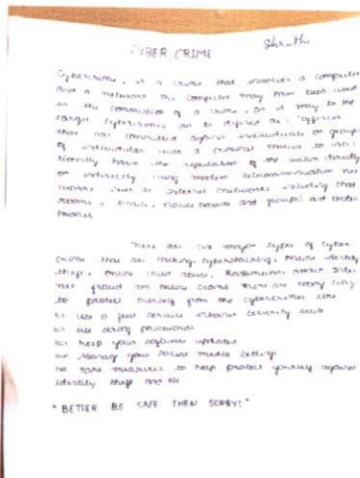 Shruthi
CYBER CRIME
Cybercrime, is a crime that involves a computer
and a network the computer may have been used
in the commission of a crime, or it may be the
target Cybercrimes can be defined as: "offences
that are committed against individuals or groups
of individuals with a criminal motive to
harm the reputation of the victim directly
or indirectly using modern telecommunication
such as Internet (networks including chat
rooms, emails, notice boards and groups) and mobile
phones
There are six major types of cyber
crime that are Hacking, cyberstalking, online identity
theft, online child abuse, Ransomware attack, Inter
net fraud and online scams There are many ways
to protect from the cybercrimes like
use a full service internet security suite
use strong passwords
keep your software updated
Manage your social media settings
take measures to help protect yourself against
identity theft
"BETTER BE SAFE THEN SORRY!"